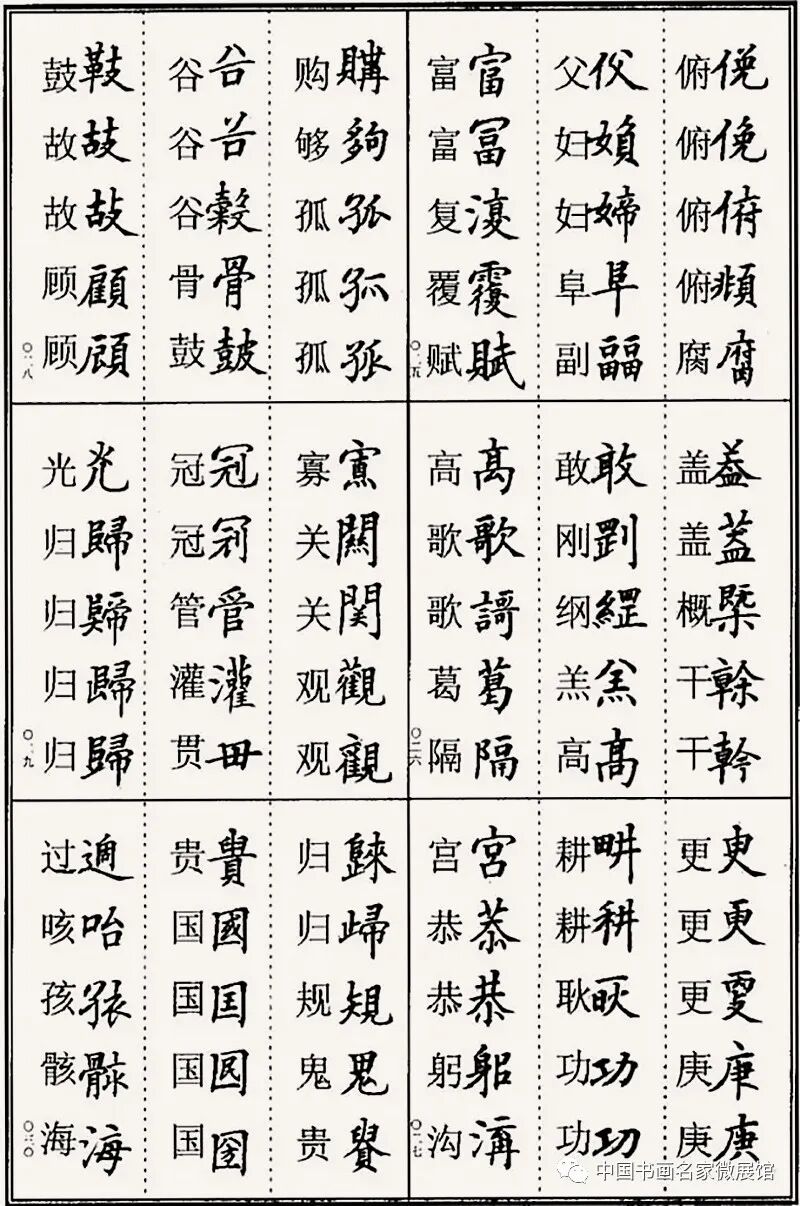 俯俛 俯俛 俯俯 俯頫 腐腐
父 妇媍 妇婦 阜阜 副疈
富富 富冨 复澓 覆覆 赋賦
〇二五
盖益 盖葢 概槩 干榦 干幹
敢敢 刚㓻 纲 羔羔 高髙
高高 歌歌 歌謌 葛葛 隔隔
〇二六
更 更更 更 庚庚 庚庚
耕畊 耕耕 耿耿 功功 功㓛
宫宮 恭恭 恭恭 躬躳 沟溝
〇二七
购購 够夠 孤孤 孤孤 孤孤
谷谷 谷谷 谷穀 骨骨 鼓皷
鼓鼓 故故 故故 顾顧 顾顧
〇二八
寡寡 关關 关関 观觀 观觀
冠冠 冠冠 管管 灌灌 贯毌
光光 归歸 归歸 归歸 归歸
〇二九
归 归歸 规規 鬼鬼 贵貴
贵貴 国國 国囯 国囻 国圀
过過 咳咍 孩孩 骸骸 海海
〇三〇
中国书画名家微展馆